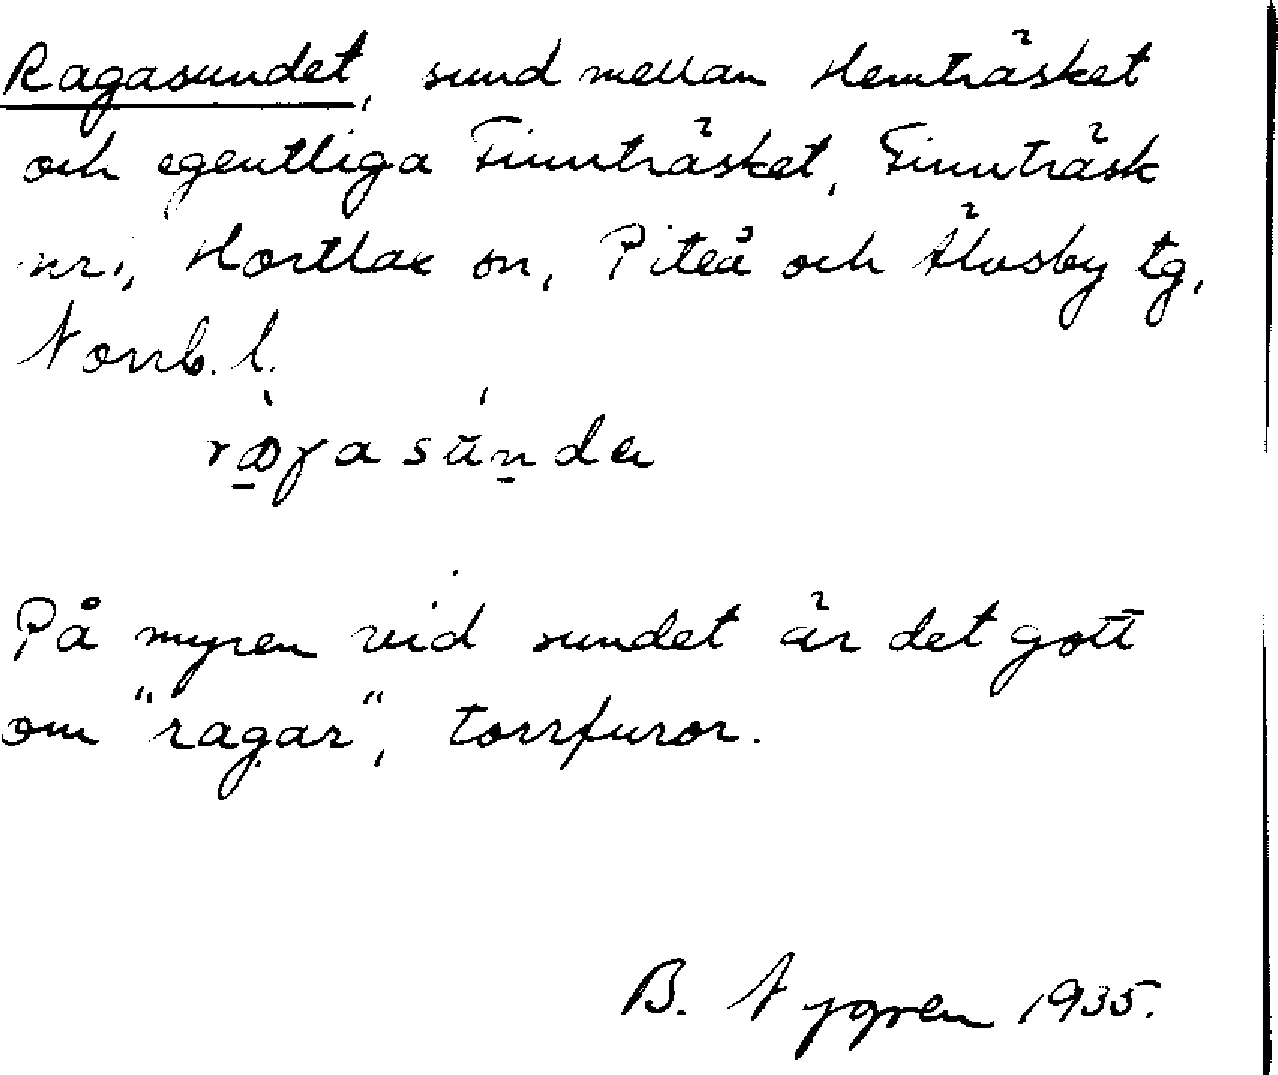 Ragasundet, sund mellan Hemträsket
och egentliga Finnträsket, Finnträsk
nr 1, Hortlax sn, Piteå och Älvsby tg,
Norrb. l.
På myren vid sundet är det gott
om "ragar", torrfuror.
B. Nygren 1935.